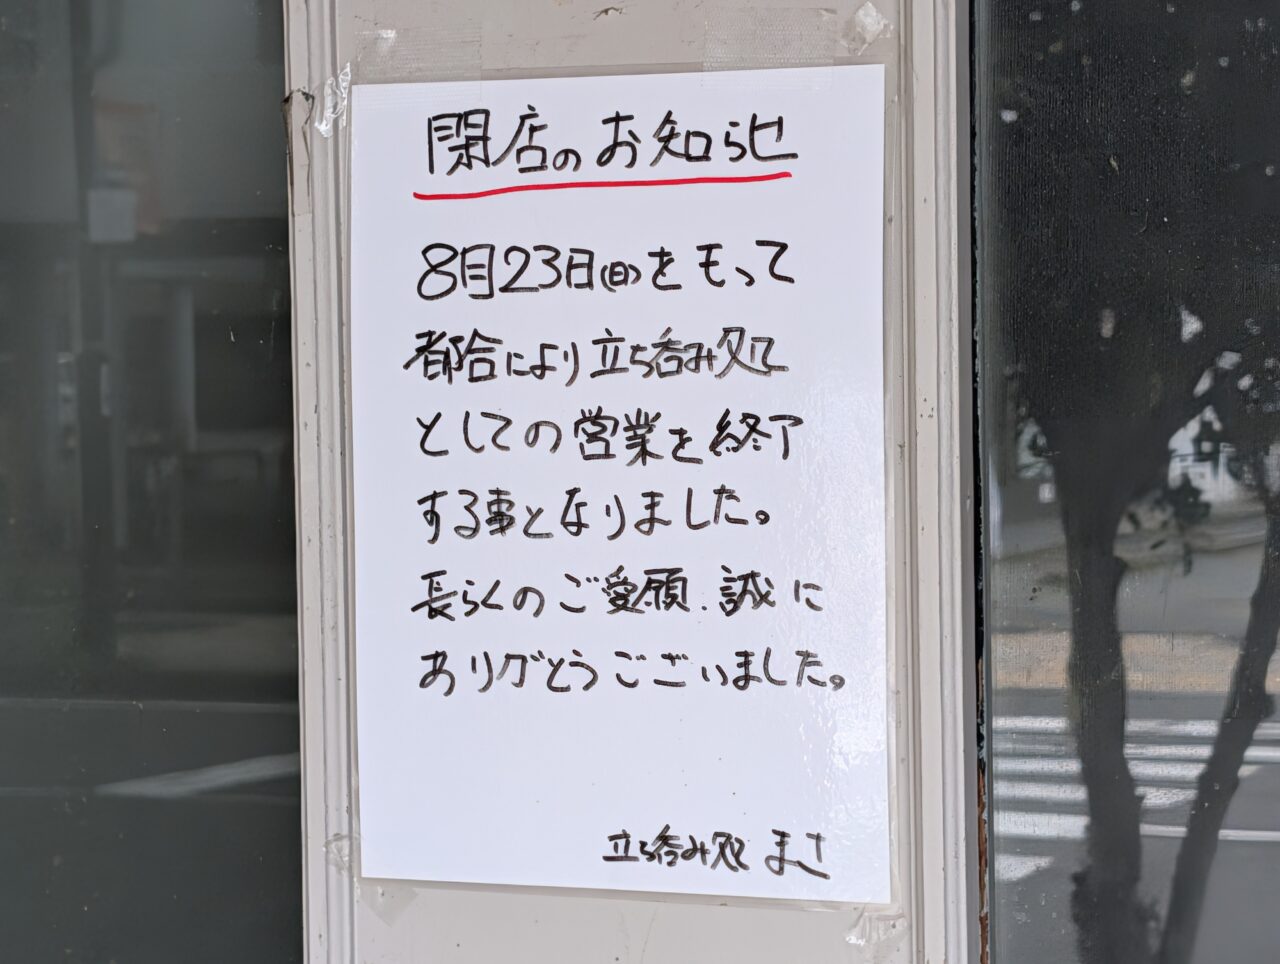 閉店のお知らせ
8月23日(日)をもって
都合により立ち呑み処
としての営業を終了
する事となりました。
長らくのご愛願、誠に
ありがとうございました。
立ち呑み処 まさ